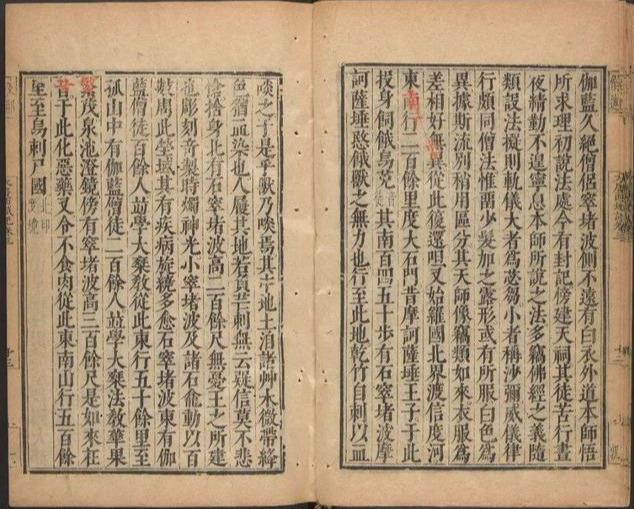 伽藍久絕僧侶窣堵波側不遠有白衣外道本師悟
所求理初說法處今有封記傍建天祠其徒苦行晝
夜精勤不遑寧息本師所說之法多竊佛經之義隨
類設法擬則軌儀大者為苾芻小者稱沙彌威儀律
行頗同僧法惟留少髮加之露形或有所服白色為
異據斯流別稍用區分其天師像竊類如來衣服為
差相好無異從此復還呾叉始羅國北界渡信度河
東南行二百餘里度大石門昔摩訶薩埵王子于此
投身飼餓烏䖘其南百四五十步有石窣堵波摩
訶薩埵愍餓獸之無力也行至此地乾竹自刺以血
啖之于是乎獸乃啖焉其中地土洎諸艸木微帶絳
色猶血染也人履其地若負芒刺無云疑信莫不悲
愴捨身北有石窣堵波高二百餘尺無憂王之所建
也彫刻奇製時燭神光小窣堵波及諸石龕動以百
數周此塋域其有疾病旋繞多愈石窣堵波東有伽
藍僧徒百餘人竝學大乘教從此東行五十餘里至
孤山中有伽藍僧徒二百餘人竝學大乘法教華果
繁茂泉池澄鏡傍有窣堵波高二百餘尺是如來在
昔于此化惡藥叉令不食肉從此東南山行五百餘
里至烏剌尸國北印度境